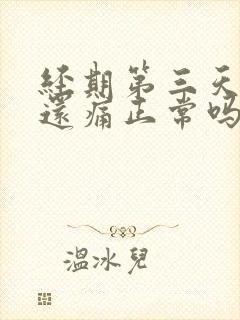 经期第三天
還痛正常吗
溫冰兒